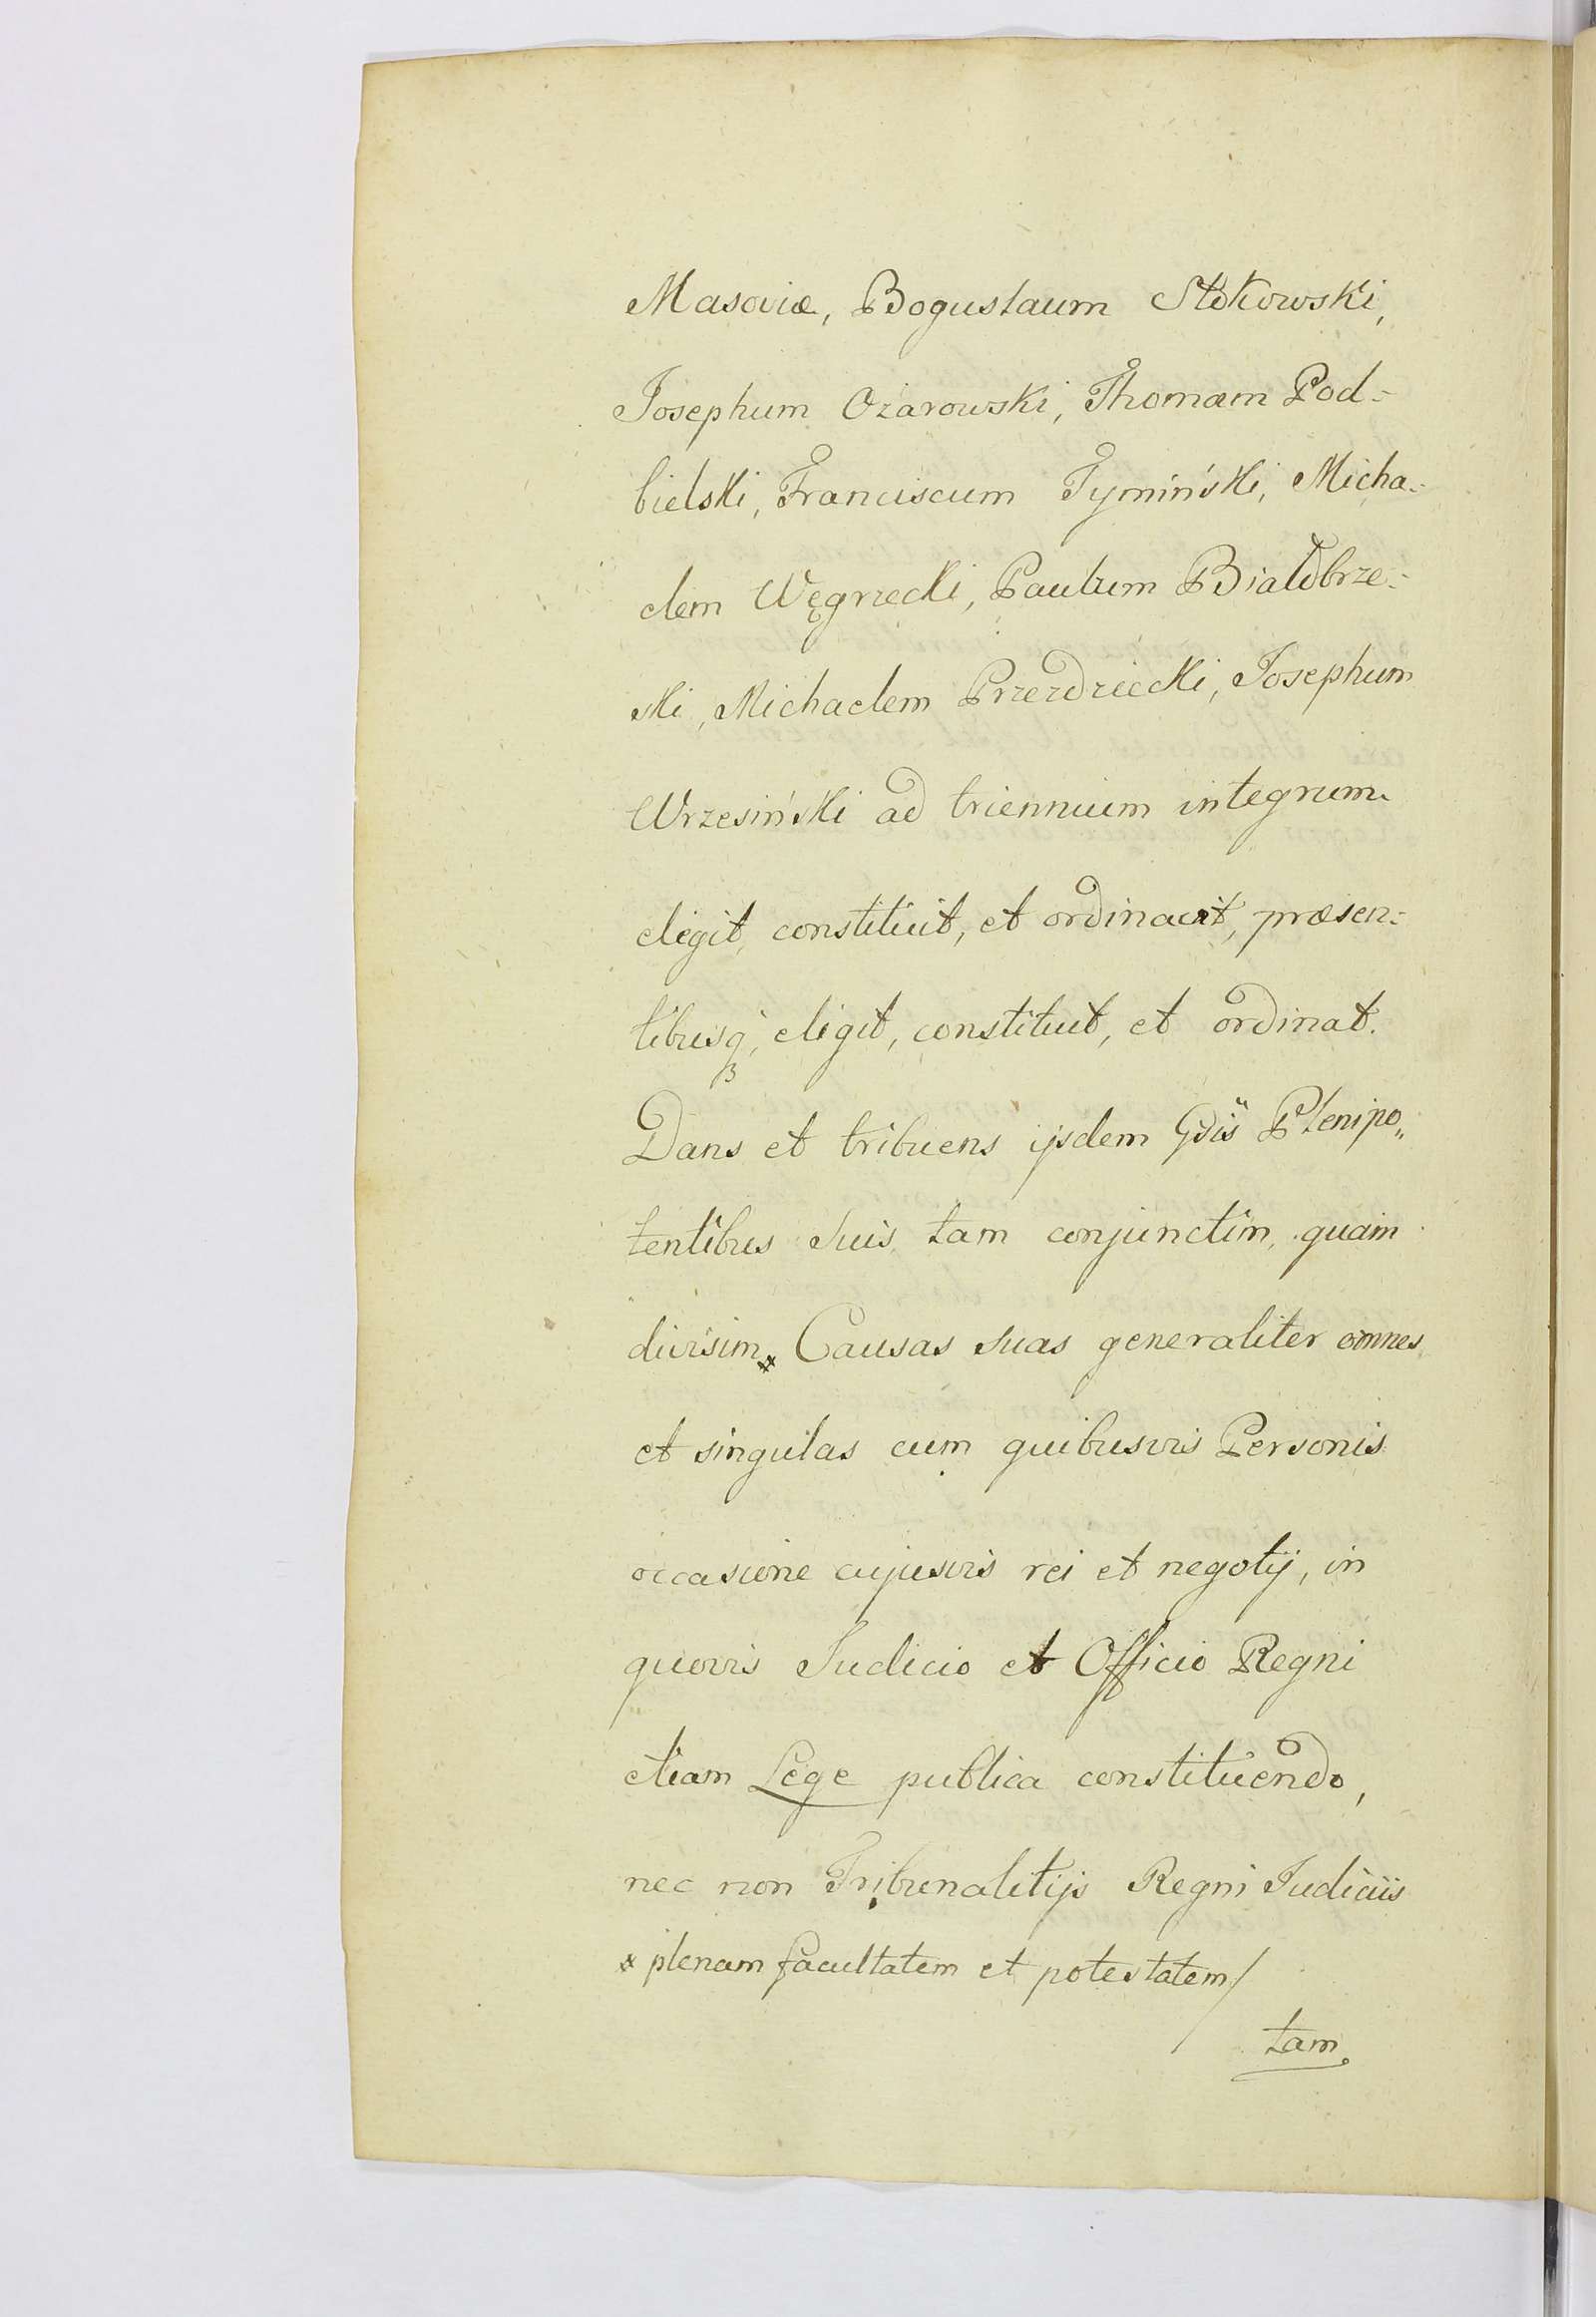 Masoviæ, Bogusłaum Stokowski,
Josephum Ożarowski, Thomam Pod-
bielski, Franciscum Tymiński, Micha-
elem Węgrzecki, Paulum Białobrze-
ski, Michaelem Przezdziecki, Josephum
Wrzesiński ad triennium integrum
elegit, constituit, et ordinavit, præsen-
tibusq, eligit, constituit, et ordinat.
Dans et tribuens ijsdem Gdis Plenipo„
tentibus suis tam conjunctim, quam
divisim x Causas suas generaliter omnes
et singulas cum quibusvis Personis
occasione cujusvis rei et negotij, in
quovis Judicio et Officio Regni
etiam Lege publica constituendo,
nec non Tribunalitijs Regni Judiciis
x plenam facultatem et potestatem/
tam